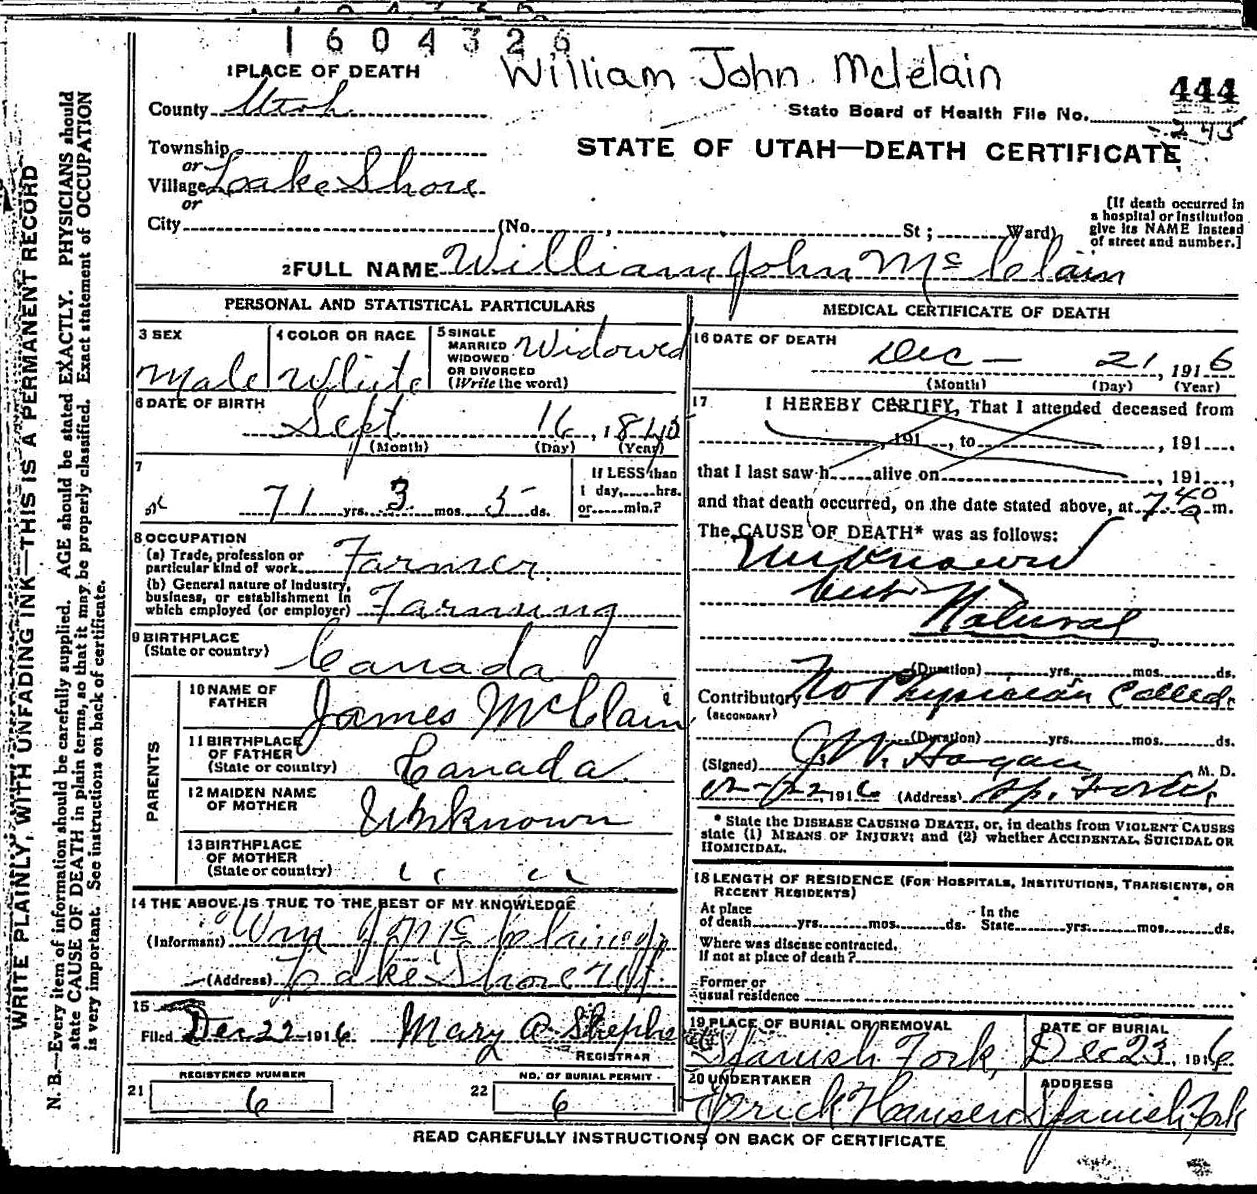 1604326
William John Mclelain
444
1 PLACE OF DEATH
County Utah
State Board of Health File No. 245
Township
STATE OF UTAH—DEATH CERTIFICATE
or
Village Lake Shore
or
City (No. , St; Ward)
[If death occurred in
a hospital or institution
give its NAME instead
of street and number.]
2 FULL NAME William John McClain
PERSONAL AND STATISTICAL PARTICULARS
3 SEX
Male
4 COLOR OR RACE
White
5 SINGLE
MARRIED
WIDOWED
OR DIVORCED
(Write the word)
Widowed
6 DATE OF BIRTH
Sept 16, 1845
(Month) (Day) (Year)
7
71 yrs. 3 mos. 5 ds.
If LESS than
1 day, hrs.
or min.?
8 OCCUPATION
(a) Trade, profession or
particular kind of work Farmer
(b) General nature of Industry,
business, or establishment in
which employed (or employer) Farming
9 BIRTHPLACE
(State or country) Canada
PARENTS
10 NAME OF
FATHER James McClain
11 BIRTHPLACE
OF FATHER
(State or country) Canada
12 MAIDEN NAME
OF MOTHER Unknown
13 BIRTHPLACE
OF MOTHER
(State or country) " "
14 THE ABOVE IS TRUE TO THE BEST OF MY KNOWLEDGE
(Informant) Wm J McClain Jr
(Address) Lake Shore Ut.
15
Filed Dec 22 1916 Mary A Shephe
REGISTRAR
REGISTERED NUMBER
21 6
NO. OF BURIAL PERMIT
22 6
MEDICAL CERTIFICATE OF DEATH
16 DATE OF DEATH
Dec — 21, 1916
(Month) (Day) (Year)
17 I HEREBY CERTIFY, That I attended deceased from
, 191 , to , 191 ,
that I last saw h alive on , 191 ,
and that death occurred, on the date stated above, at 7 40 a m.
The CAUSE OF DEATH* was as follows:
Unknown
but
Natural
(Duration) yrs. mos. ds.
Contributory No Physician Called.
(SECONDARY)
(Duration) yrs. mos. ds.
(Signed) J. W. Hagan M. D.
12-22, 1916 (Address) Sp. Fork.
* State the DISEASE CAUSING DEATH, or, in deaths from VIOLENT CAUSES
state (1) MEANS OF INJURY; and (2) whether ACCIDENTAL, SUICIDAL OR
HOMICIDAL.
18 LENGTH OF RESIDENCE (FOR HOSPITALS, INSTITUTIONS, TRANSIENTS, OR
RECENT RESIDENTS)
At place
of death yrs. mos. ds.
In the
State yrs. mos. ds.
Where was disease contracted,
If not at place of death?
Former or
usual residence
19 PLACE OF BURIAL OR REMOVAL
Spanish Fork,
DATE OF BURIAL
Dec 23 1916
20 UNDERTAKER
Erick Hansen
ADDRESS
Spanish Fork
READ CAREFULLY INSTRUCTIONS ON BACK OF CERTIFICATE
WRITE PLAINLY, WITH UNFADING INK—THIS IS A PERMANENT RECORD
N. B.—Every item of information should be carefully supplied. AGE should be stated EXACTLY. PHYSICIANS should
state CAUSE OF DEATH in plain terms, so that it may be properly classified. Exact statement of OCCUPATION
is very important. See instructions on back of certificate.